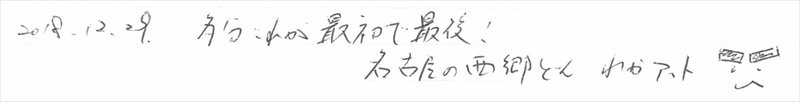 2018.12.29. 多分これが最初で最後!
名古屋の西郷どん わかアート